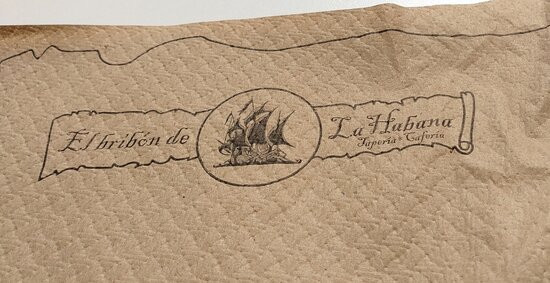 El bribón de
La Habana
Tapería Cafería